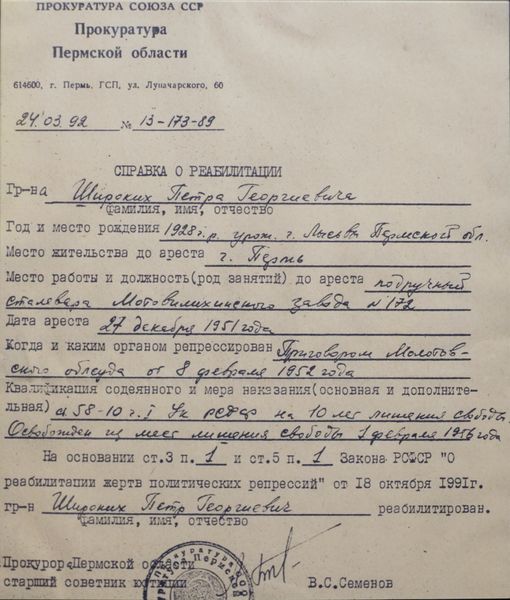 ПРОКУРАТУРА СОЮЗА ССР
Прокуратура
Пермской области
614600, г. Пермь, ГСП, ул. Луначарского, 60
24.03.92 № 13-173-89
СПРАВКА О РЕАБИЛИТАЦИИ
Гр-на Широких Петра Георгиевича
фамилия, имя, отчество
Год и место рождения 1928 г.р. урож. г. Лысьвы Пермской обл.
Место жительства до ареста г. Пермь
Место работы и должность(род занятий) до ареста подручный
сталевара Мотовилихинского завода № 172
Дата ареста 27 декабря 1951 года
Когда и каким органом репрессирован Приговором Молотов-
ского облсуда от 8 февраля 1952 года
Квалификация содеянного и мера наказания(основная и дополните-
льная) ст 58-10 ч. I УК РСФСР на 10 лет лишения свободы.
Освобожден из мест лишения свободы 1 февраля 1956 года
На основании ст.3 п. 1 и ст.5 п. 1 Закона РСФСР "О
реабилитации жертв политических репрессий" от 18 октября 1991г.
гр-н Широких Петр Георгиевич реабилитирован.
фамилия, имя, отчество
Прокурор Пермской области
старший советник юстиции В.С.Семенов